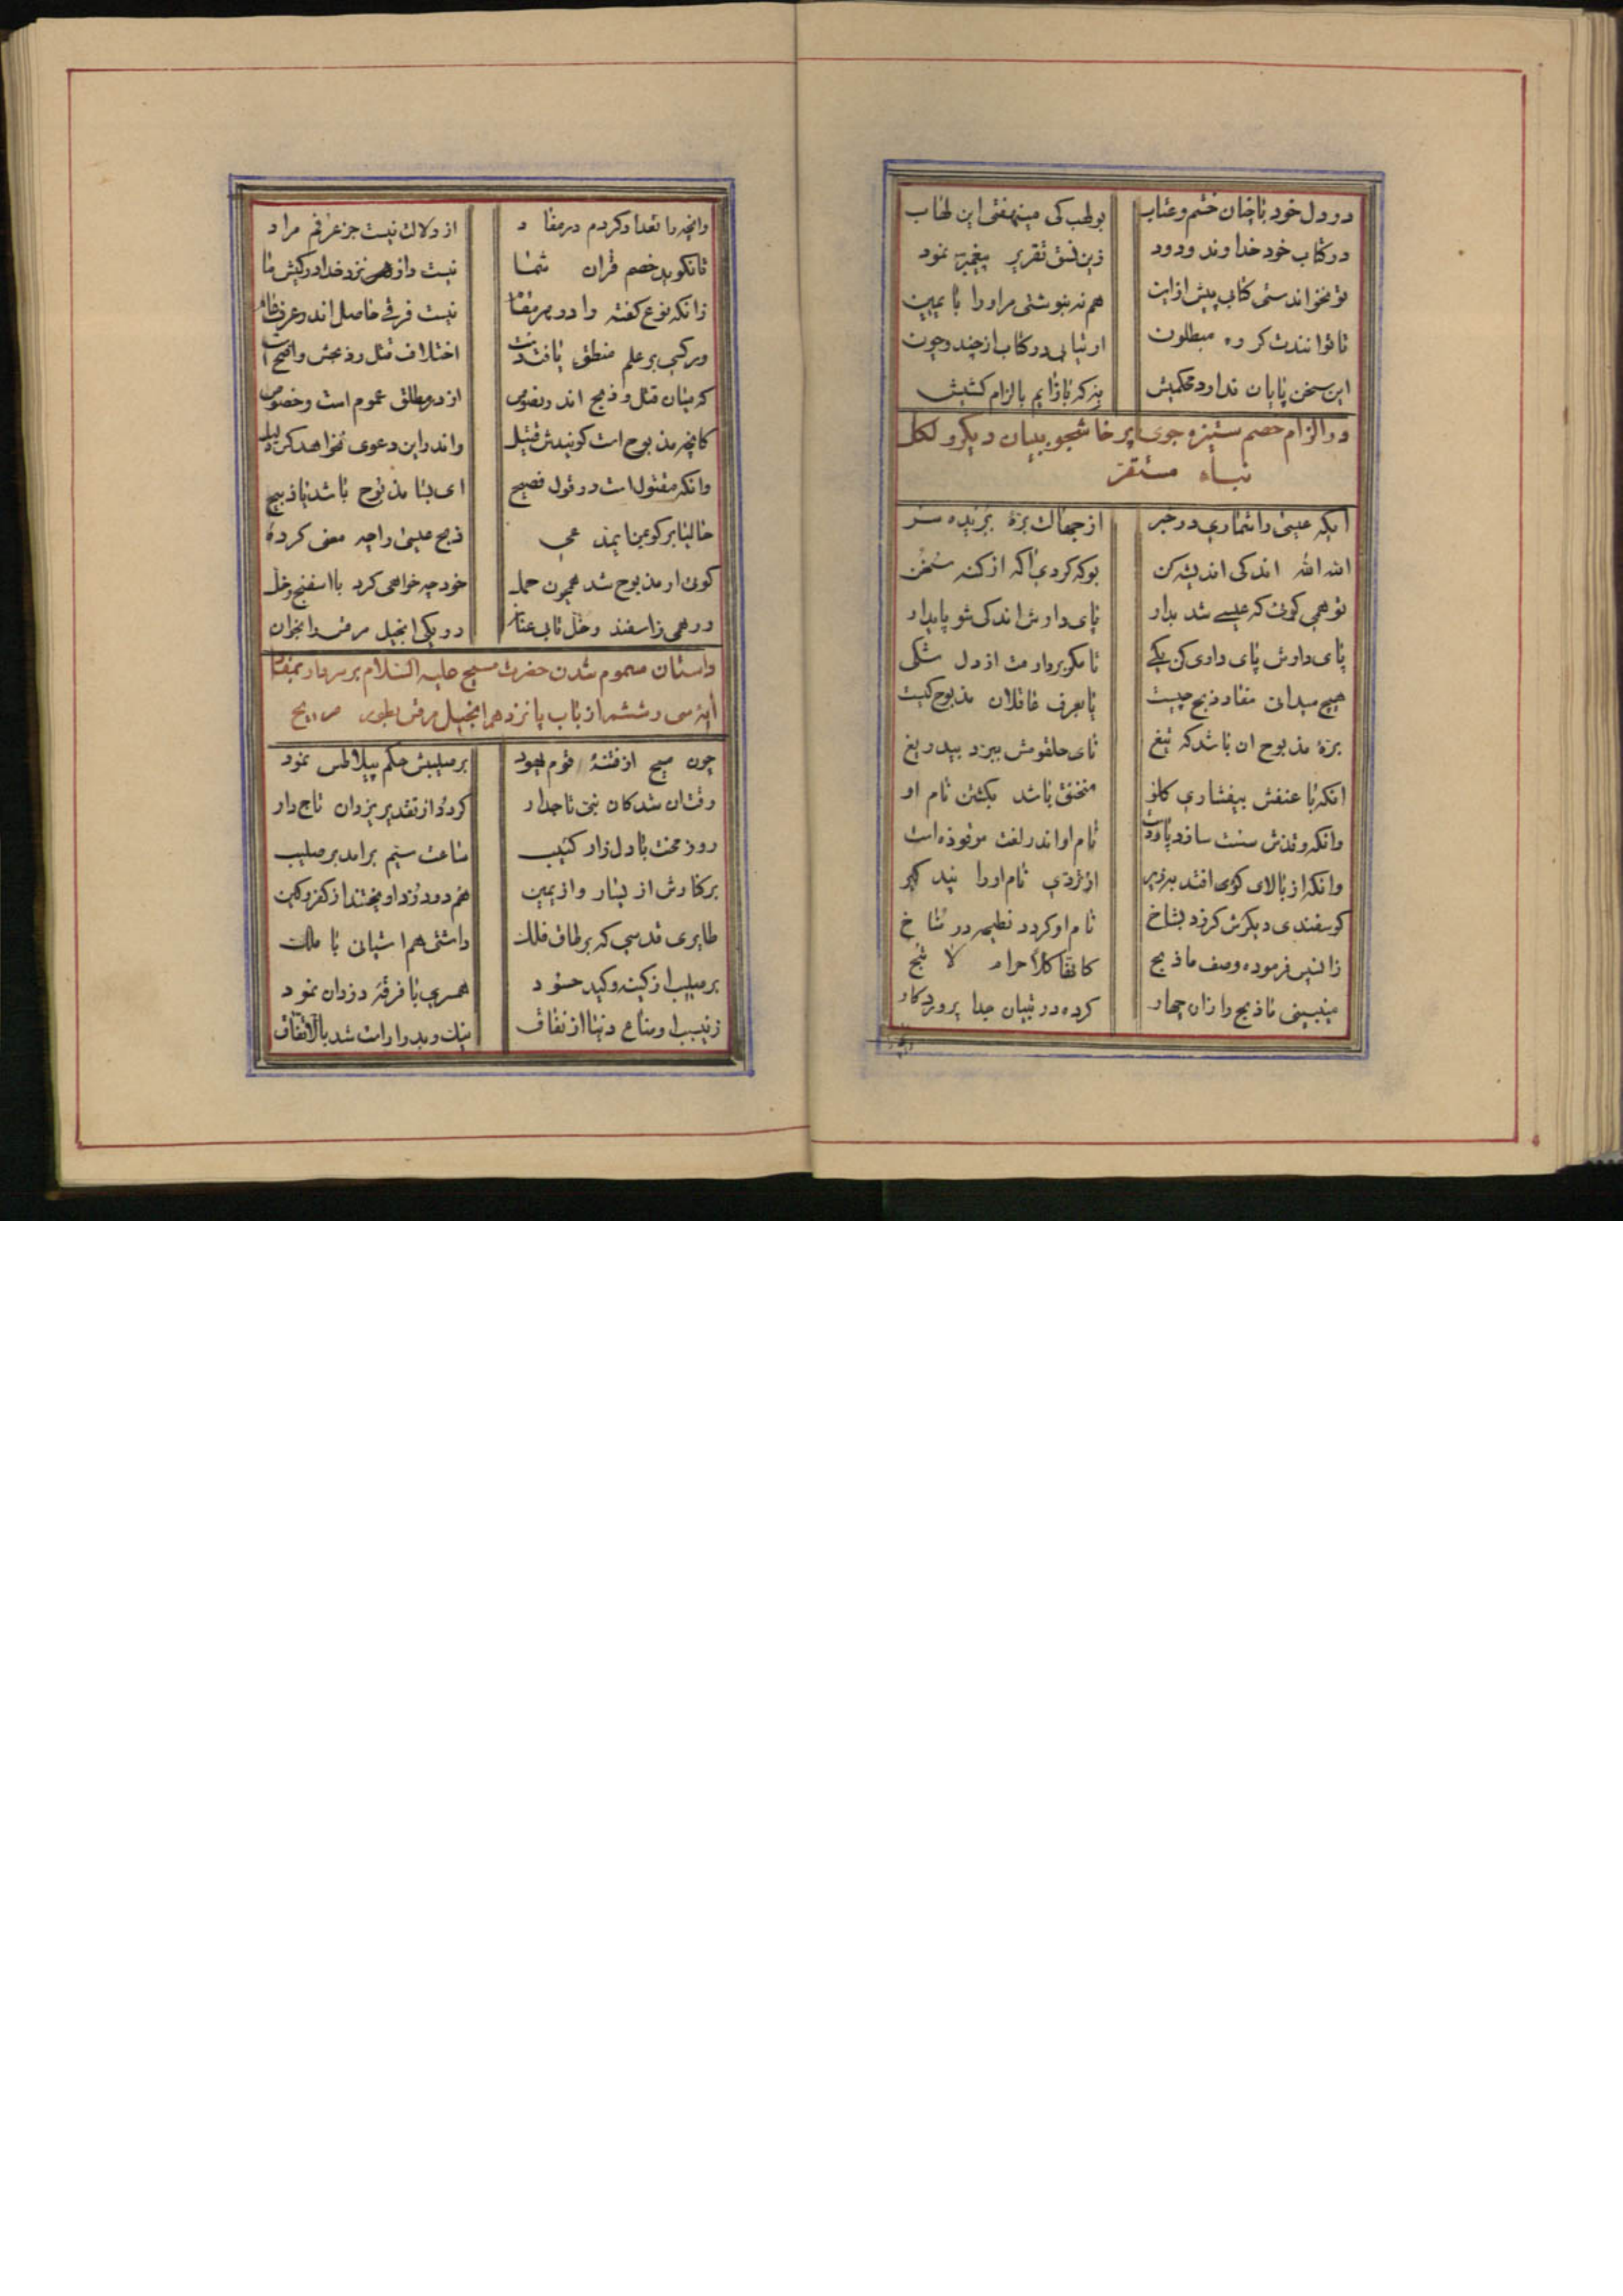 در دل خود با چنان خشم و عتاب بولهب کی مینهفتی این لهاب
در کتاب خود خداوند ودود زین نسق تقریر پیغمبر نمود
تو نخواندستی کتاب پیش ازاین هم نه بنوشتی مراورا با یمین
تا توانندت کرده مبطلون ارتیابی در کتاب از چند و چون
این سخن پایان ندارد به که بازایم بالزام کشیش
در الزام خصم ستیزه جوی پرخاشجو ببیان دیگر و لکل
نباء مستقر
ایکه عیسی را شماری در خبر از جهالت بره بریده سر
الله الله اندکی اندیشه کن بو که کردی آکه از کنه سخن
تو همی کوئی که عیسی شد بدار پای دارش اندکی شو پایدار
پای دارش پای داری کن یکی تا مکر بردارمت از دل شکی
هیچ میدانی مفاد ذبح چیست یا بعرف عاقلان مذبوح کیست
بره مذبوح ان باشد که تیغ نای حلقومش ببرد بیدریغ
انکه با عنفش بیفشاری کلو منخنق باشد بکشتن نام او
وانکه وقذش سنت سازد نام او اندر لغت موقوذه است
وانکه از بالای کوی افتد بزیر از تردی نام اورا پند کیر
کوسفندی دیکرش کر زد بشاخ نام او کردد نطیحه در شاخ
زانپس فرموده وصف ما ذبح کانها کلا حرام لا تبح
میببینی ما ذبح را زان چهار کرده در تبیان جدا پروردکار
وانچه را تعداد کردم در مفاد از دلالت نیست جز عرفم مراد
تا نکوید خصم قران شما نیست نزد خدا در کیش ما
زانکه نوع کفته را در هر مقام نیست فرقی حاصل اندر عرف عام
ور کسی بر علم منطق یافت دست اختلاف قتل و ذبحش واضح است
که میان قتل و ذبح اندر نصوص از در مطلق عموم است و خصوص
کانچه مذبوح است کویندش قتیل واندراین دعوی نخواهد کس دلیل
وانکه مقتول است در قول فصیح ای بسا مذبوح باشد یا ذبیح
حالیا بر کو ذبح عیسی را چه معنی کرده
کوئی ار مذبوح شد همچون حمل خود چه خواهی کرد با اسفنج و خل
ور همی زاسفند و خل تابی عنان رو یکی انجیل مرقس را بخوان
داستان مسموم شدن حضرت مسیح علیه السلام بر سر دار بمفاد
ایه سی و ششم از باب پانزدهم انجیل مرقس بطور صریح
چون مسیح از فتنه قوم یهود بر صلیبش حکم پیلاطس نمود
وقت ان شد کان نبی تاجدار کردد از تقدیر یزدان تاج دار
روز محنت با دل زار کئیب ساعت سیم برامد بر صلیب
بر کنارش از یسار و از یمین هم دو دزد اویختند از کفر و کین
طایری قدسی که بر طاق فلک داشتی هم اشیانی با ملک
بر صلیب از کینه و کید حسود همسری با فرقه دزدان نمود
زینسب اوضاع دنیا از نفاق نیک و بد را راست شد بالاتفاق